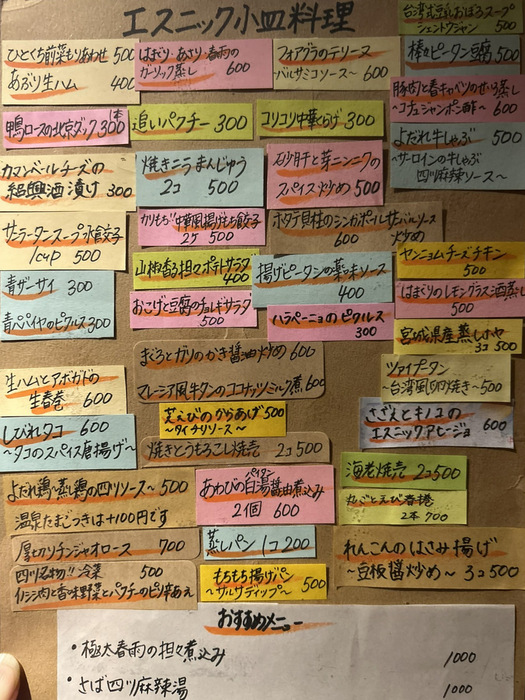 エスニック小皿料理
台湾式豆乳おぼろスープ
シェントウジャン 500
ひとくち前菜もりあわせ 500
あぶり生ハム 400
はまぐり・あさり・春雨の
ガーリック蒸し 600
フォアグラのテリーヌ
〜バルサミコソース〜 600
棒々ピータン豆腐 500
豚肉と春キャベツのせいろ蒸し
〜コチュジャンポン酢〜 600
鴨ロースの北京ダック 1本 300
追いパクチー 300
コリコリ中華くらげ 300
よだれ牛しゃぶ 500
〜サーロインの牛しゃぶ
四川麻辣ソース〜
カマンベールチーズの
紹興酒漬け 300
焼きニラまんじゅう
2コ 500
砂肝と芽ニンニクの
スパイス炒め 500
サンラータンスープ水餃子
1cup 500
カリもち!!中華風揚げもち餃子
2ケ 500
ホタテ貝柱のシンガポールサンバルソース
炒め
600
山椒香る担々ポテトサラダ
400
揚げピータンの薬味ソース
400
ヤンニョムチーズチキン
500
青ザーサイ 300
青パパイヤのピクルス 300
おこげと豆腐のチョレギサラダ
500
ハラペーニョのピクルス
300
はまぐりのレモングラス酒蒸し
500
宮城県産蒸しホヤ
3コ 500
まぐろとガリのかき醤油炒め 600
マレーシア風牛タンのココナッツミルク煮 600
ツァイプータン
〜台湾風玉子焼き〜 500
生ハムとアボカドの
生春巻 600
芝えびのからあげ 500
〜タイチリソース〜
さざえとキノコの
エスニックアヒージョ 600
しびれタコ 600
〜タコのスパイス唐揚げ〜
焼きとうもろこし焼売 2コ 500
海老焼売 2コ 500
丸ごとえび春捲
2本 700
よだれ鶏・蒸し鶏の四川ソース〜 500
温泉たまごつきは+100円です
あわびの白湯醤油煮込み
パイタン
2個 600
厚切りチンジャオロース 700
蒸しパン 1コ 200
れんこんのはさみ揚げ
〜豆板醤炒め〜 3コ 500
四川名物!! 冷菜 500
イノシシ肉と香味野菜とパクチーのピリ辛あえ
もちもち揚げパン
〜サルサディップ〜 500
おすすめメニュー
・極太春雨の担々煮込み 1000
・さば四川麻辣湯 1000